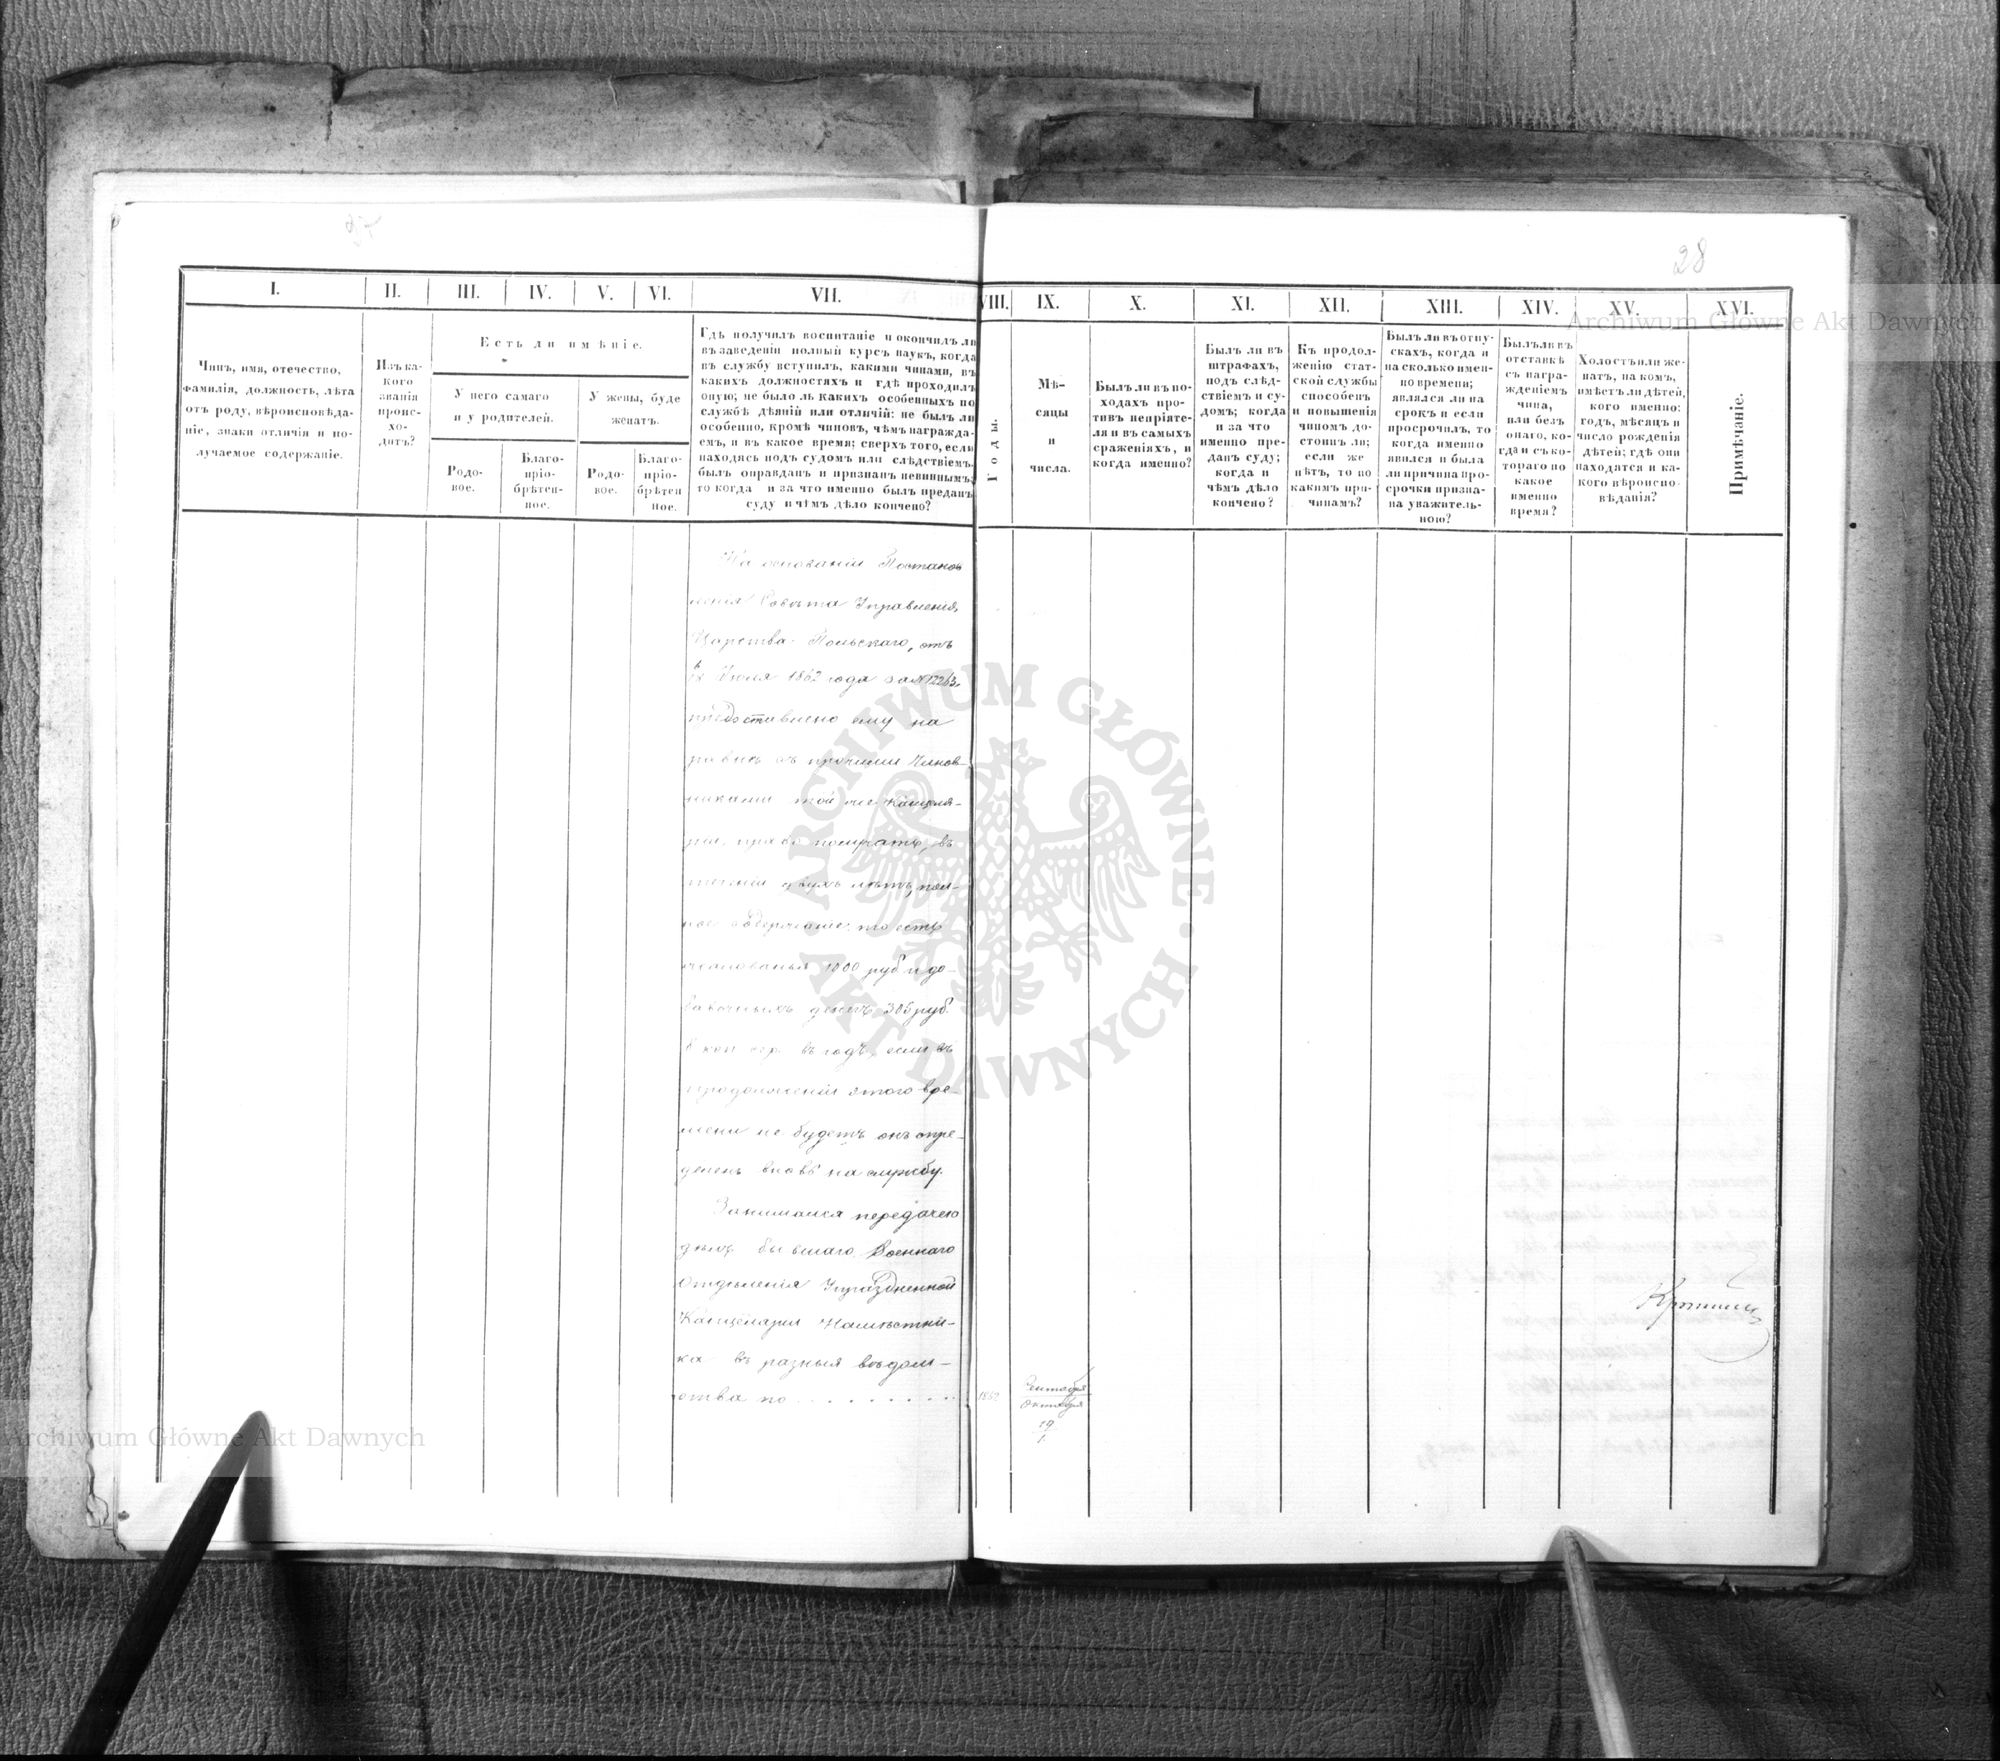 28
I.
II.
III.
IV.
V.
VI.
VII.
VIII.
IX.
X.
XI.
XII.
XIII.
XIV.
XV.
XVI.
Чинъ, имя, отечество,
фамилія, должность, лѣта
отъ роду, вѣроисповѣда-
ніе, знаки отличія и по-
лучаемое содержаніе.
Изъ ка-
кого
званія
проис-
хо-
дитъ?
Есть ли имѣніе.
У него самаго
и у родителей.
У жены, буде
женатъ.
Родо-
вое.
Благо-
пріо-
брѣтен-
ное.
Родо-
вое.
Благо-
пріо-
брѣтен
ное.
Гдѣ получилъ воспитаніе и окончилъ ли
въ заведеніи полный курсъ наукъ, когда
въ службу вступилъ, какими чинами, въ
какихъ должностяхъ и гдѣ проходилъ
оную; не было ль какихъ особенныхъ по
службѣ дѣяній или отличій: не былъ ли
особенно, кромѣ чиновъ, чѣмъ награжда-
емъ, и въ какое время; сверхъ того, если
находясь подъ судомъ или слѣдствіемъ
былъ оправданъ и признанъ невиннымъ;
то когда и за что именно былъ преданъ
суду и чѣмъ дѣло кончено?
Годы.
Мѣ-
сяцы
и
числа.
Былъ ли въ по-
ходахъ про-
тивъ непріяте-
ля и въ самыхъ
сраженіяхъ, и
когда именно?
Былъ ли въ
штрафахъ,
подъ слѣд-
ствіемъ и су-
домъ; когда
и за что
именно пре-
данъ суду;
когда и
чѣмъ дѣло
кончено?
Къ продол-
женію стат-
ской службы
способенъ
и повышенія
чиномъ до-
стоинъ ли;
если же
нѣтъ, то по
какимъ при-
чинамъ?
Былъ ли въ отпу-
скахъ, когда и
на сколько имен-
но времени;
являлся ли на
срокъ и если
просрочилъ, то
когда именно
явился и была
ли причина про-
срочки призна-
на уважитель-
ною?
Былъ ли въ
отставкѣ
съ награ-
жденіемъ
чина,
или безъ
онаго, ко-
гда и съ ко-
тораго по
какое
именно
время?
Холостъ или же-
натъ, на комъ,
имѣетъ ли дѣтей,
кого именно:
годъ, мѣсяцъ и
число рожденія
дѣтей; гдѣ они
находятся и ка-
кого вѣроиспо-
вѣданія?
Примѣчаніе.
На основаніи Постанов
ленія Совѣта Управленія
Царства Польскаго, отъ
Іюля 1862 года за №12263,
предоставлено ему на
равнѣ съ прочими Чинов-
никами той же Канцеля-
ріи, право получать, въ
теченіи двухъ лѣтъ, пол-
ное содержаніе, то есть
жалованья 1000 руб и до-
бавочныхъ денегъ 305 руб.
коп сер. въ годъ, если въ
продолженіи этого вре-
мени не будетъ онъ опре-
деленъ вновь на службу.
Занимался передачею
дѣлъ бывшаго Военнаго
Отдѣленія Упраздненной
Канцеляріи Намѣстни-
ка въ разныя вѣдом-
ства по . . . . . . . . .
1862
Сентября
Октября
19
1
ARCHIWUM GŁÓWNE
AKT DAWNYCH
Archiwum Główne Akt Dawnych
Archiwum Główne Akt Dawnych